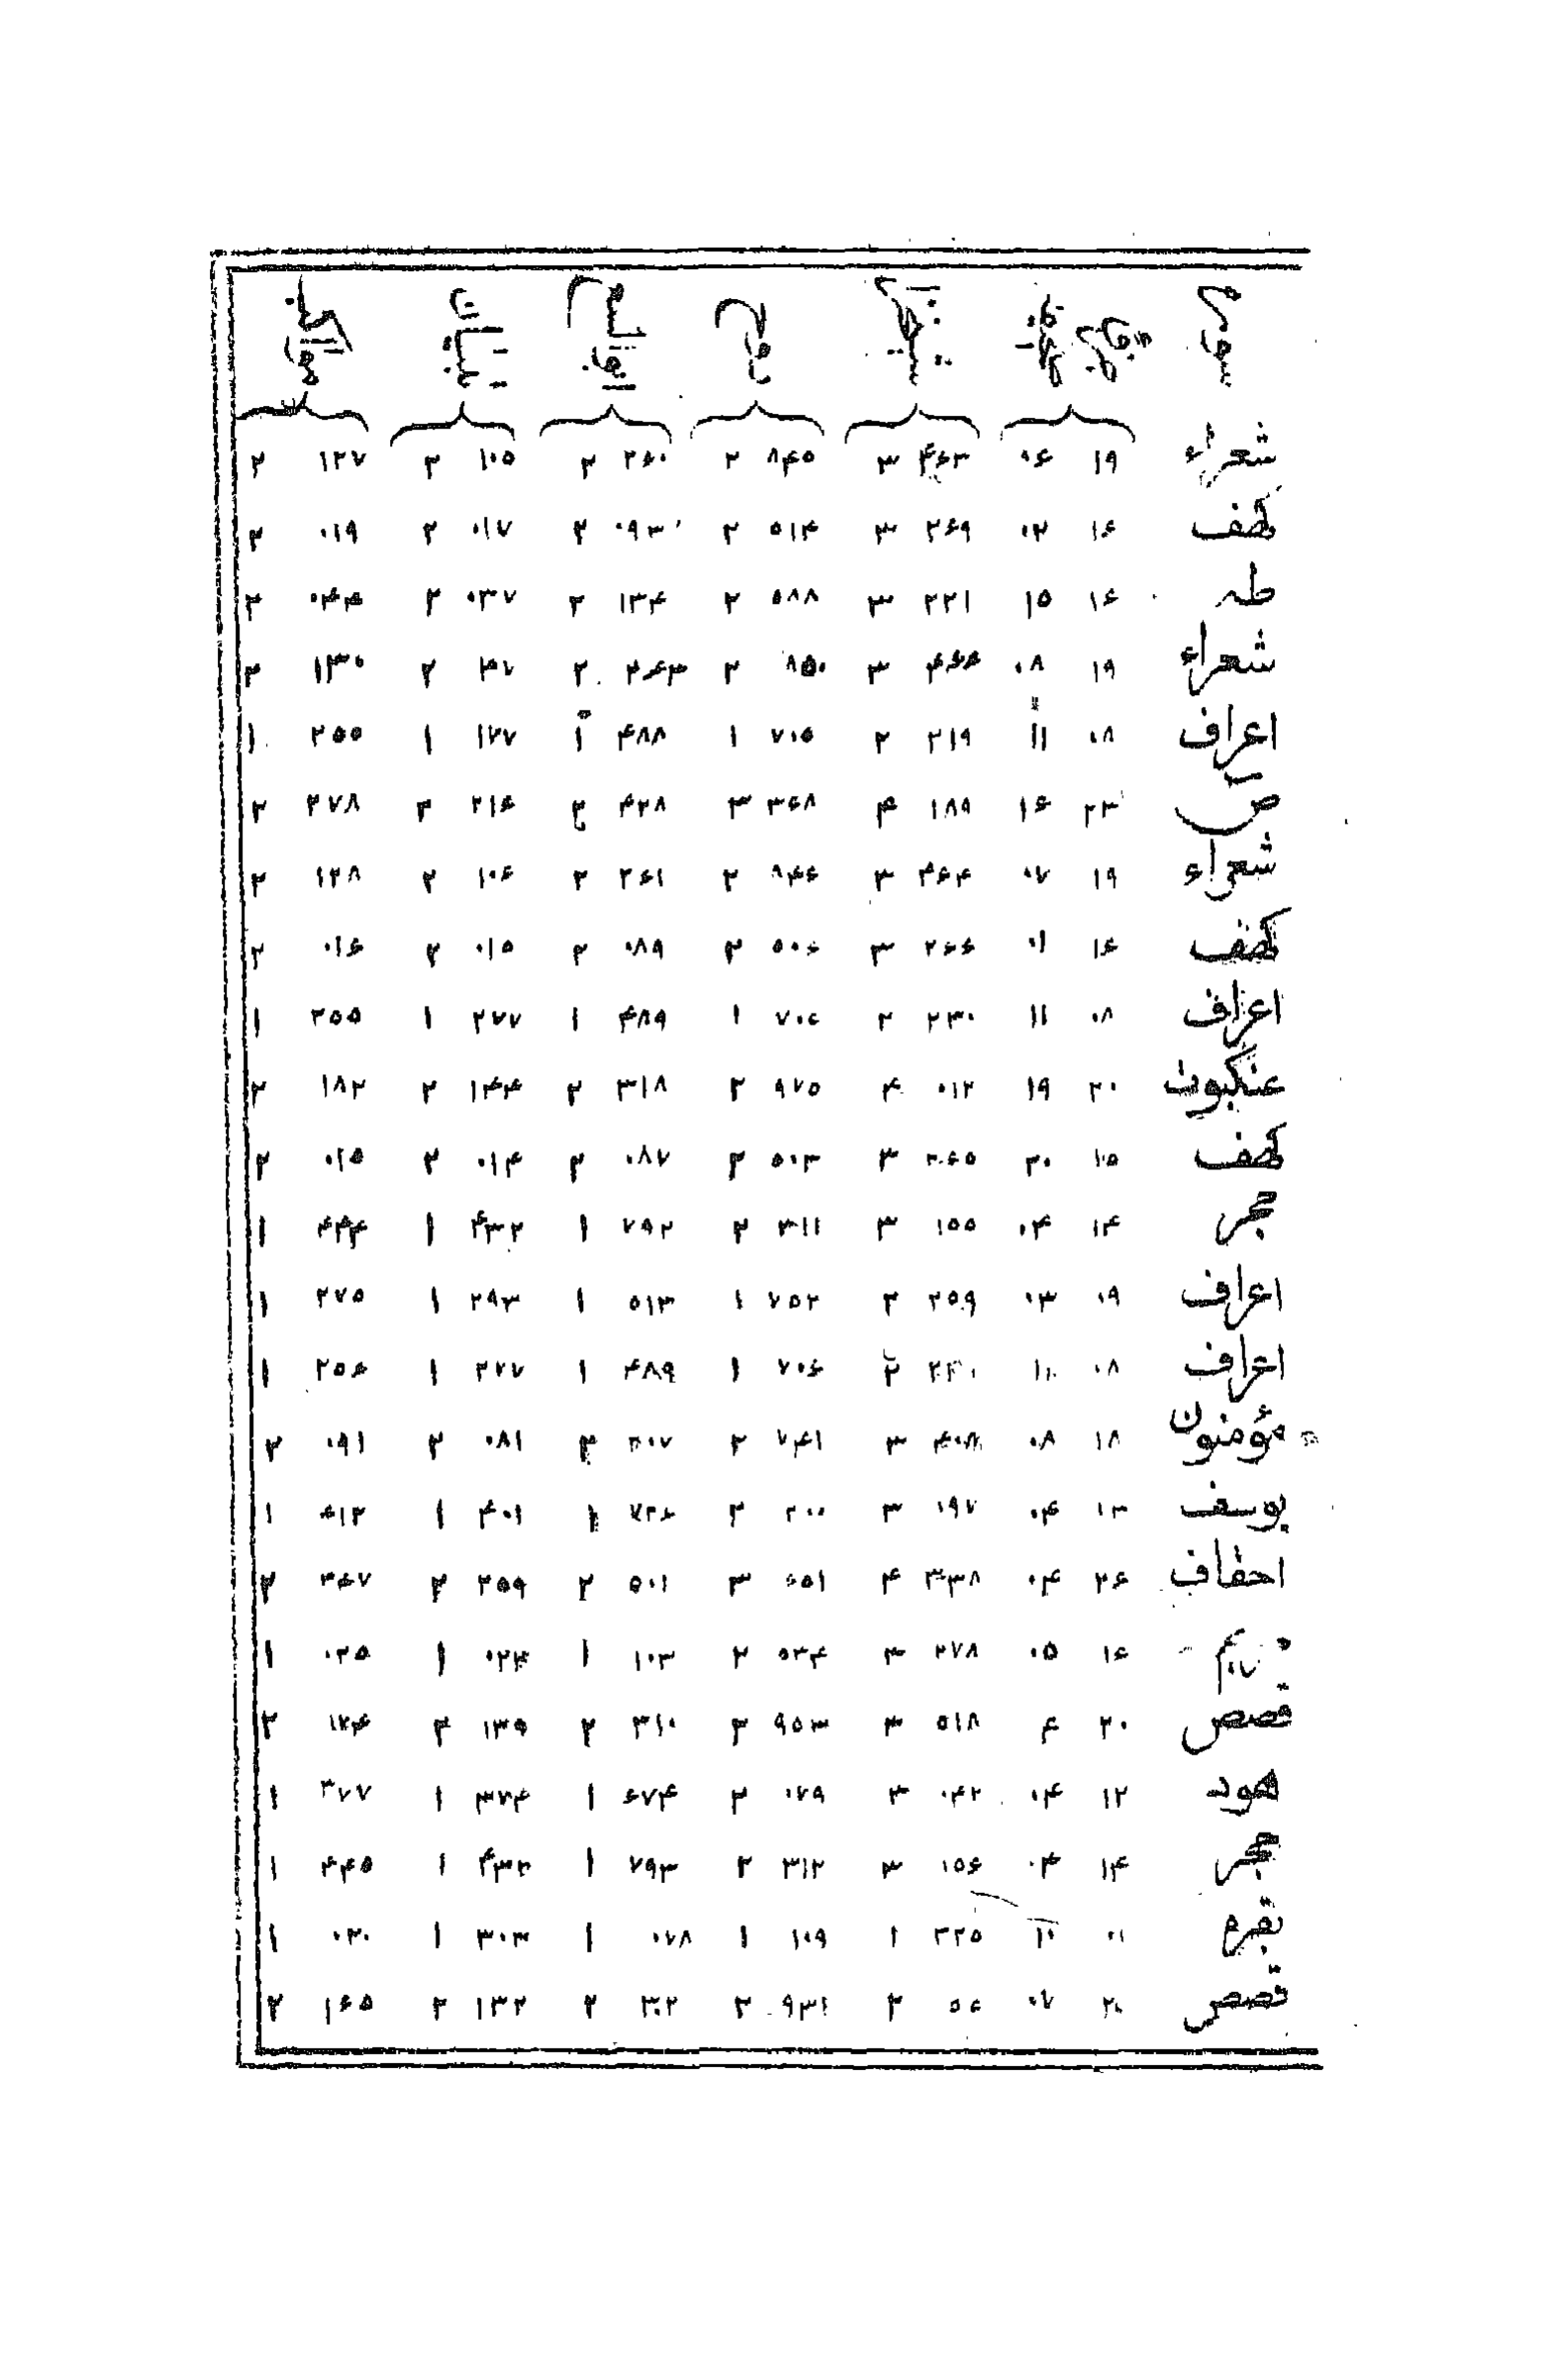 سوره
شعراء ۱۹ ۰۶ ۴۶۳ ۳ ۸۴۵ ۲ ۲۶۰ ۲ ۱۰۵ ۲ ۱۲۷ ۲
کهف ۱۶ ۰۲ ۲۶۹ ۳ ۵۱۴ ۲ ۰۹۳ ۲ ۰۱۷ ۲ ۰۱۹ ۲
طه ۱۶ ۱۵ ۲۲۱ ۳ ۵۸۸ ۲ ۱۳۴ ۲ ۰۳۷ ۲ ۰۴۴ ۲
شعراء ۱۹ ۰۸ ۴۶۶ ۳ ۸۵۰ ۲ ۲۶۳ ۲ ۳۷ ۲ ۱۳۰ ۲
اعراف ۰۸ ۱۱ ۲۱۹ ۲ ۷۰۵ ۱ ۴۸۸ ۱ ۱۷۷ ۱ ۲۵۵ ۱
ص ۲۳ ۱۶ ۱۸۹ ۴ ۳۶۸ ۳ ۴۲۸ ۲ ۲۱۶ ۲ ۲۷۸ ۲
شعراء ۱۹ ۰۷ ۴۶۴ ۳ ۸۴۶ ۲ ۲۶۱ ۲ ۱۰۶ ۲ ۱۲۸ ۲
کهف ۱۶ ۰۱ ۲۶۶ ۳ ۵۰۶ ۲ ۰۸۹ ۲ ۰۱۵ ۲ ۰۱۶ ۲
اعراف ۰۸ ۱۱ ۲۳۰ ۲ ۷۰۶ ۱ ۴۸۹ ۱ ۲۷۷ ۱ ۲۵۵ ۱
عنکبوت ۲۰ ۱۹ ۰۱۲ ۴ ۹۷۵ ۲ ۳۱۸ ۲ ۱۴۴ ۲ ۱۸۲ ۲
کهف ۱۵ ۲۰ ۲۶۵ ۳ ۵۰۳ ۲ ۰۸۷ ۲ ۰۱۴ ۲ ۰۱۵ ۲
حجر ۱۴ ۰۴ ۱۵۵ ۳ ۳۱۱ ۲ ۷۹۲ ۱ ۴۳۲ ۱ ۴۴۴ ۱
اعراف ۰۹ ۰۳ ۲۵۹ ۲ ۷۵۲ ۱ ۵۱۳ ۱ ۲۹۳ ۱ ۲۷۵ ۱
اعراف ۰۸ ۱۱ ۲۳۰ ۲ ۷۰۶ ۱ ۴۸۹ ۱ ۲۷۷ ۱ ۲۵۶ ۱
مؤمنون ۱۸ ۰۸ ۴۰۸ ۳ ۷۴۱ ۲ ۲۰۷ ۲ ۰۸۱ ۲ ۰۹۱ ۲
یوسف ۱۳ ۰۴ ۰۹۷ ۳ ۲۰۰ ۲ ۷۳۶ ۱ ۴۰۱ ۱ ۴۱۲ ۱
احقاف ۲۶ ۰۴ ۳۳۸ ۴ ۶۵۱ ۳ ۵۰۱ ۲ ۲۵۹ ۲ ۳۴۷ ۲
مریم ۱۶ ۰۵ ۲۷۸ ۳ ۵۳۴ ۲ ۱۰۳ ۱ ۰۲۴ ۱ ۰۲۵ ۱
قصص ۲۰ ۴ ۵۱۸ ۳ ۹۵۳ ۲ ۳۱۰ ۲ ۱۳۹ ۲ ۱۷۴ ۲
هود ۱۲ ۰۴ ۰۴۲ ۳ ۰۷۹ ۲ ۶۷۴ ۱ ۳۷۴ ۱ ۳۷۷ ۱
حجر ۱۴ ۰۴ ۱۵۶ ۳ ۳۱۲ ۲ ۷۹۳ ۱ ۴۳۲ ۱ ۴۴۵ ۱
بقره ۰۱ ۱۰ ۲۲۵ ۱ ۱۰۹ ۱ ۰۷۸ ۱ ۳۰۳ ۱ ۰۳۰ ۱
قصص ۲۰ ۰۷ ۵۶ ۳ ۹۳۱ ۲ ۳۰۲ ۲ ۱۳۲ ۲ ۱۶۵ ۲